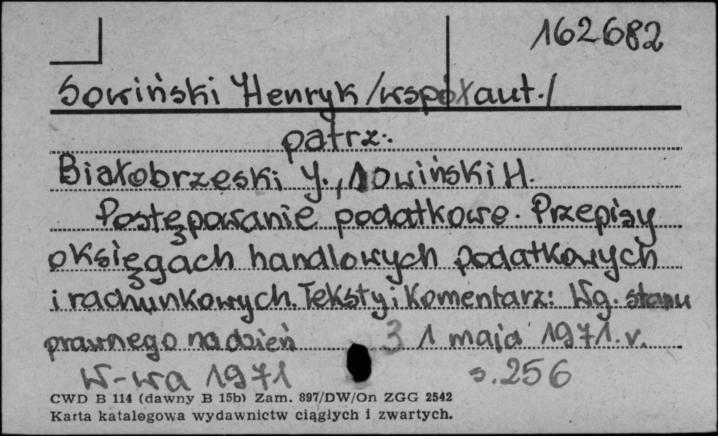 162682
Sowiński Henryk /współaut./
patrz:
Białobrzeski J., Sowiński H.
Postępowanie podatkowe. Przepisy
o księgach handlowych podatkowych
i rachunkowych. Teksty i Komentarz: Wg. stanu
prawnego na dzień 31 maja 1971.r.
W-wa 1971 s.256
CWD B 114 (dawny B 15b) Zam. 897/DW/On ZGG 2542
Karta katalogowa wydawnictw ciągłych i zwartych.